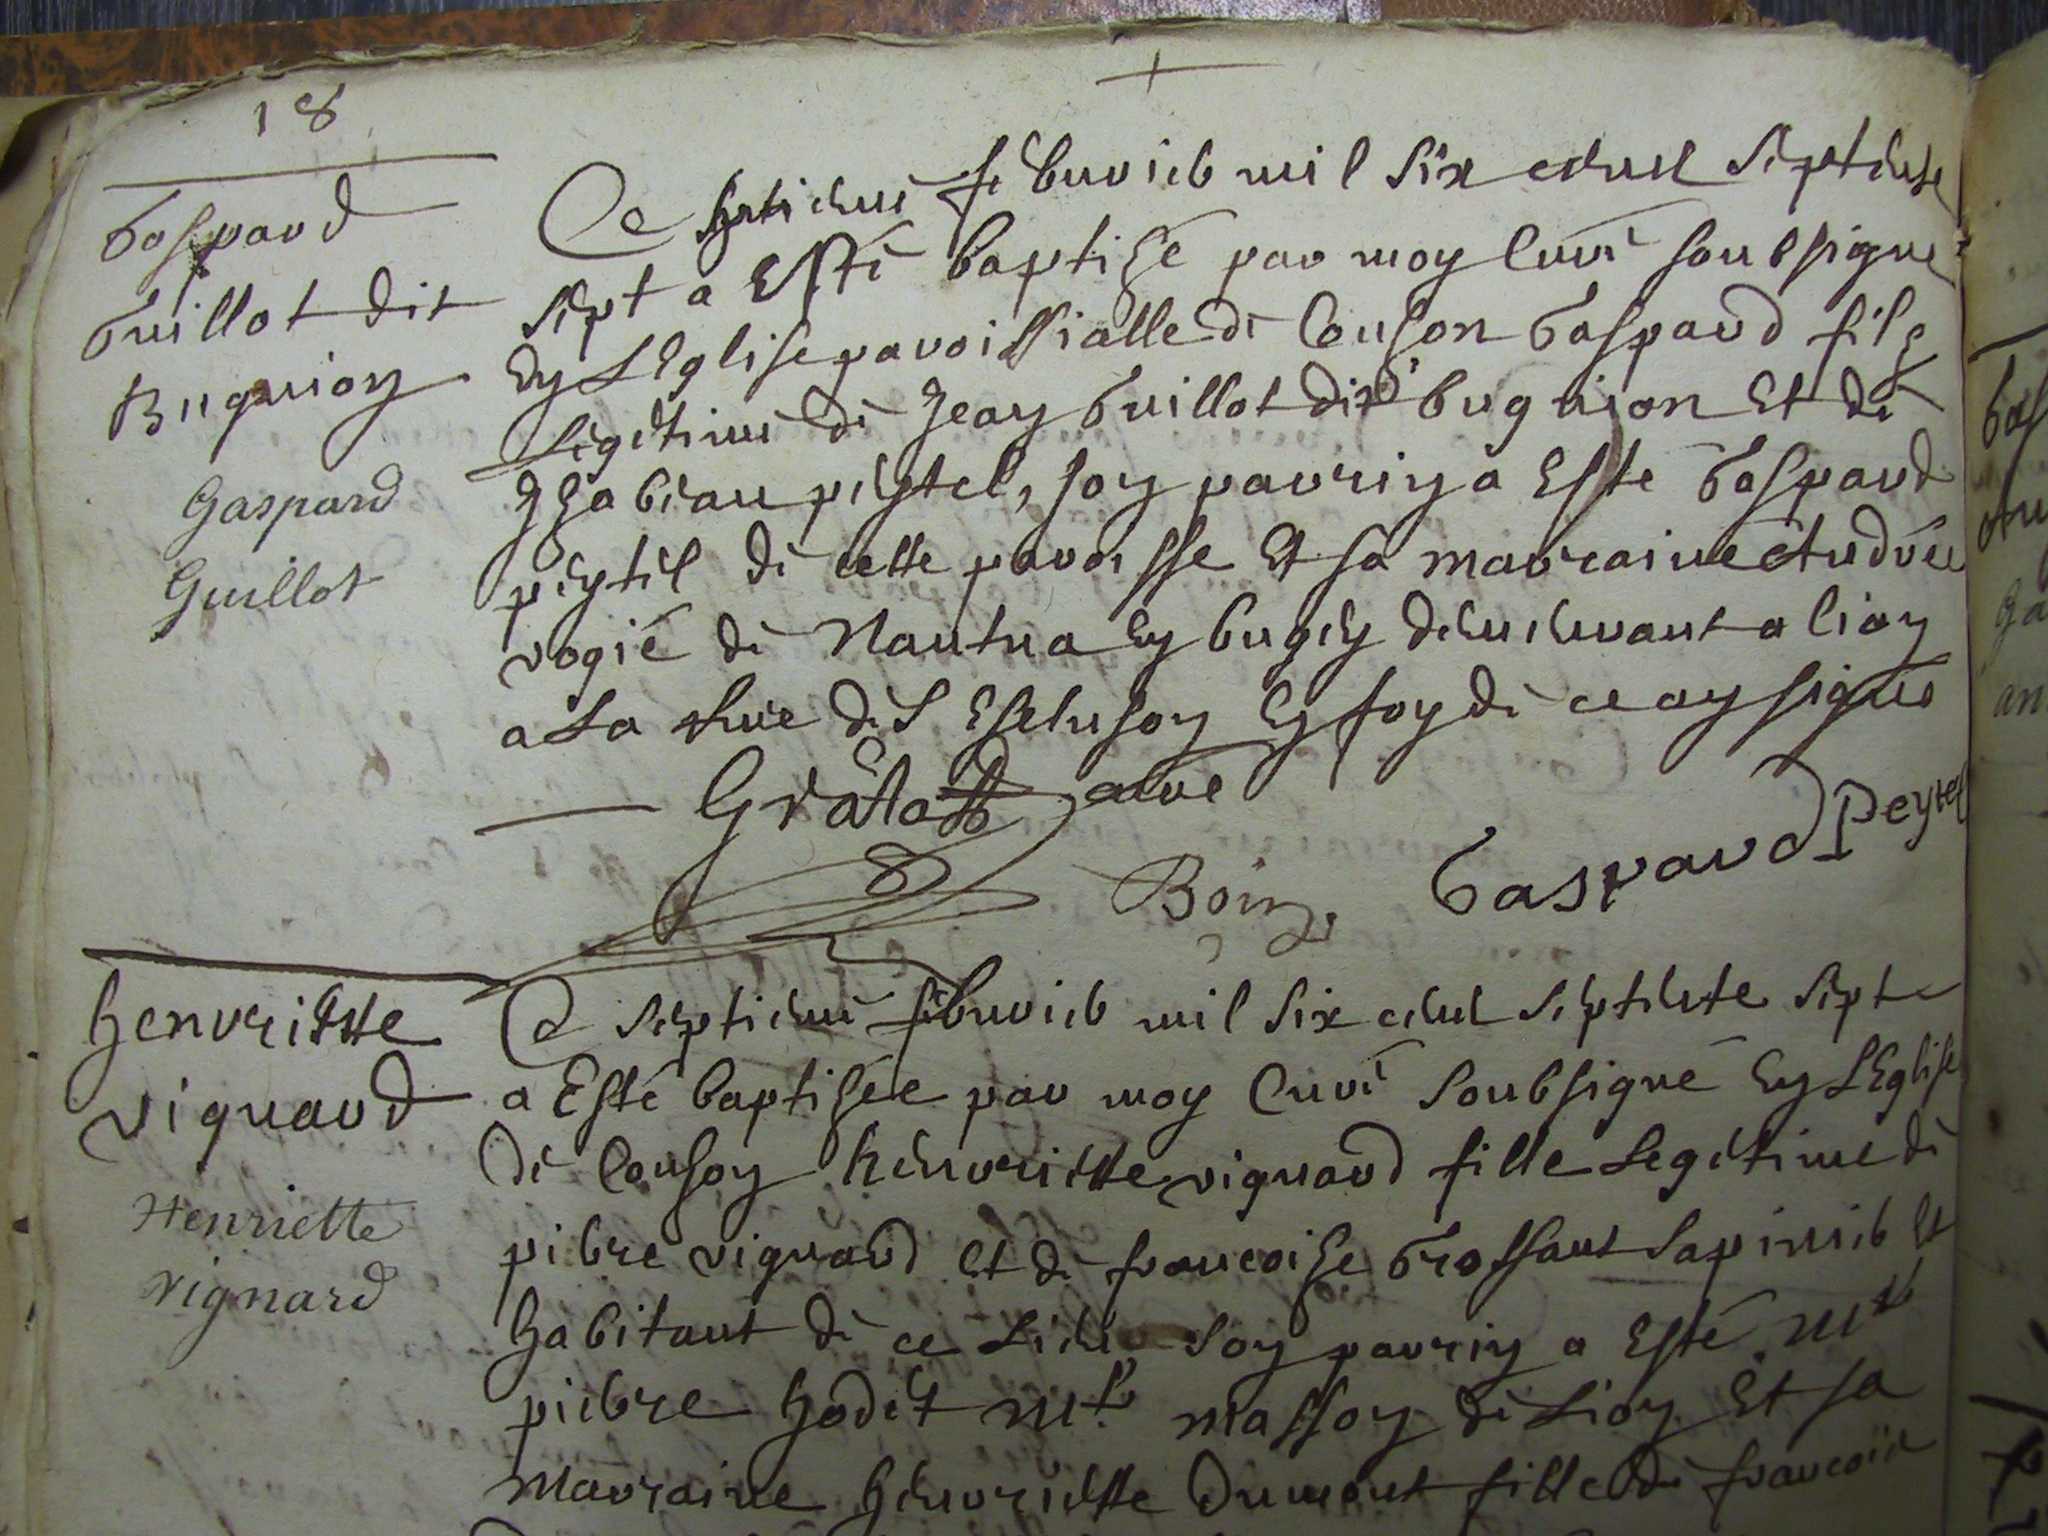 18
Gaspard
Guillot dit
Buguion
Gaspard
Guillot
Ce septieme febvrier mil six cent septente
sept a esté baptisé par moy curé soubsigné
en l'Eglise paroissialle de Couson Gaspard fils
legetime de Jean Guillot dit buguion et de
Izabeau peytel, son parrin a esté Gaspard
peytel de cette paroisse et sa marraine Andrée
rogié de Nantua en bugey demeurant a lion
a la rue de l'
en foy de ce ay signé
curé
Gaspard Peytel
henrriette
vignard
Henriette
Vignard
Ce septieme febvrier mil six cent septente sept
a esté baptisée par moy curé soubsigné en l'Eglise
de Couson henrriette vignard fille legetime de
pierre vignard et de francoise Grossant et
habitant de ce lieu son parrin a esté Mtr
pierre hodet Mtr masson de Lion et sa
marraine henrriette Dumont fille de francois